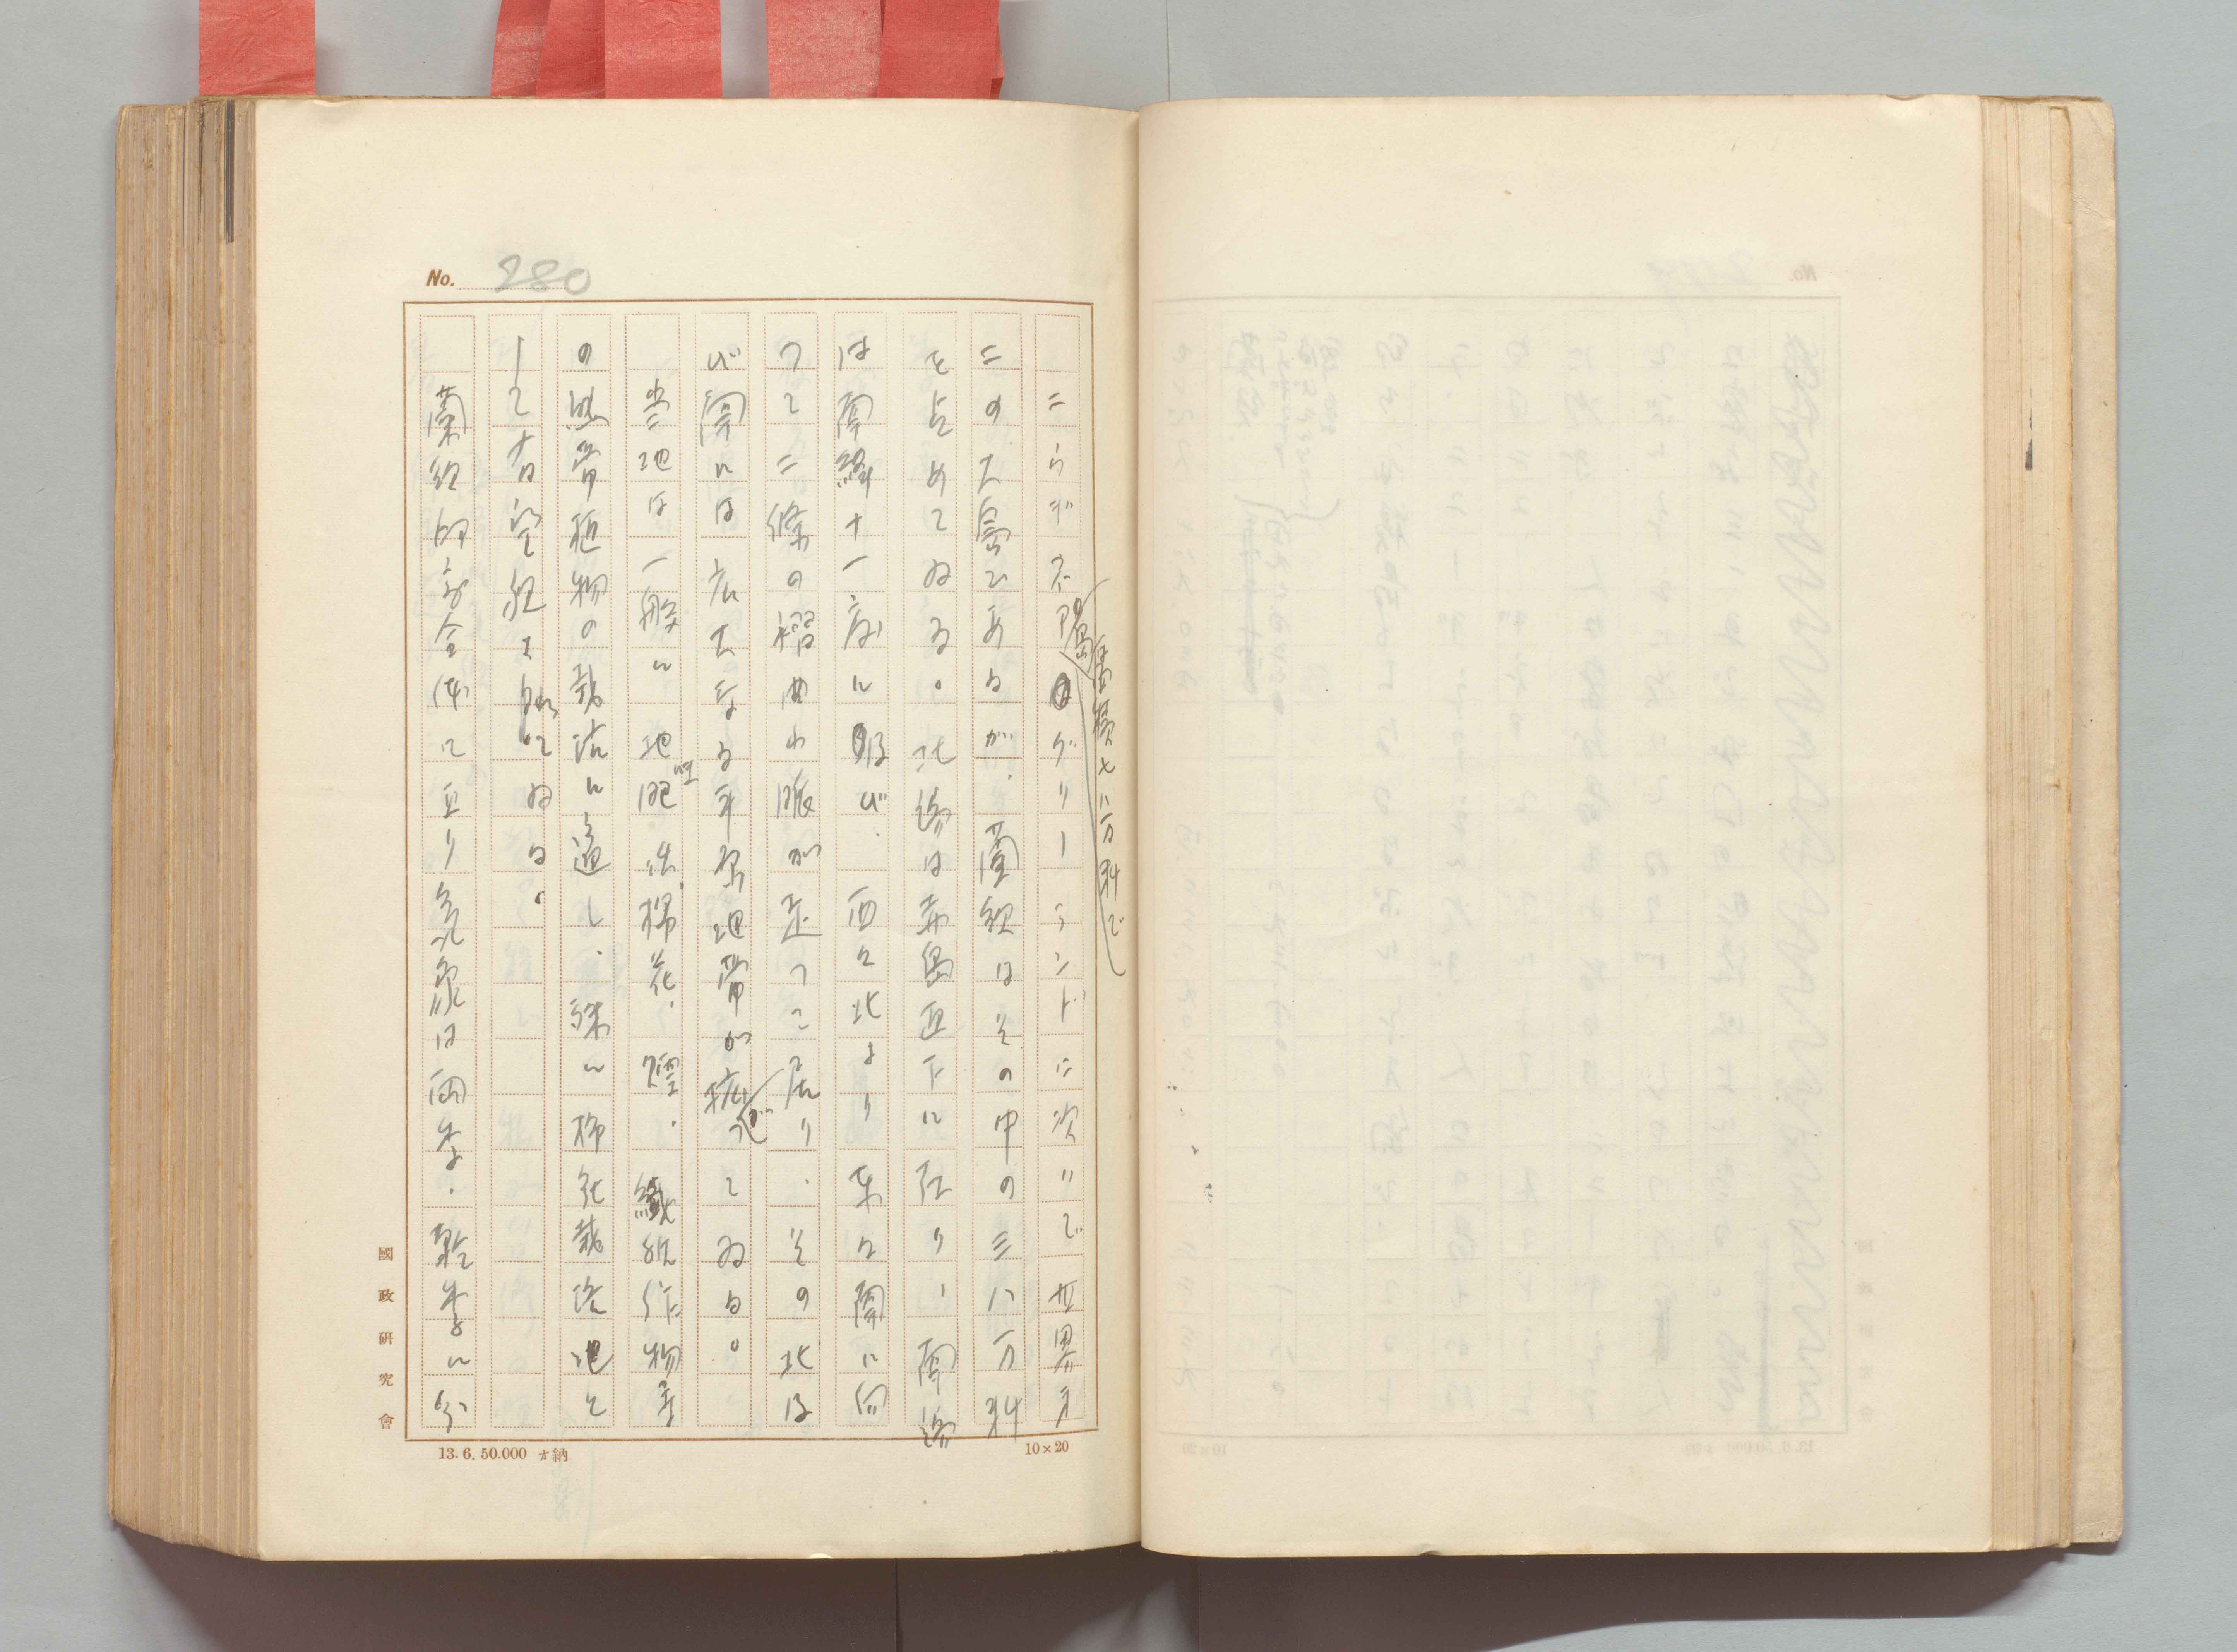 No. 280
ニウギネア島グリーランドに次〃で世界才
面積七八万粁で
二の大島であるが、蘭領はその中の三八万粁
を占めてゐる。北端は赤道直下に在り、南端
は南緯十一度に及び、西々北より東々南に向
つて二條の褶曲山脈が走つて居り、その北
び南には広大なる平原地帯が拡がつてゐる。
当地は一般に地味肥沃、棉花、繊維作物等
の熱帯植物の栽培に適し、殊に棉花栽培地と
して有望視されてゐる。
蘭領印度全体に亘り気象は雨季、乾季に分
國政研究會
13. 6. 50.000 納
10×20